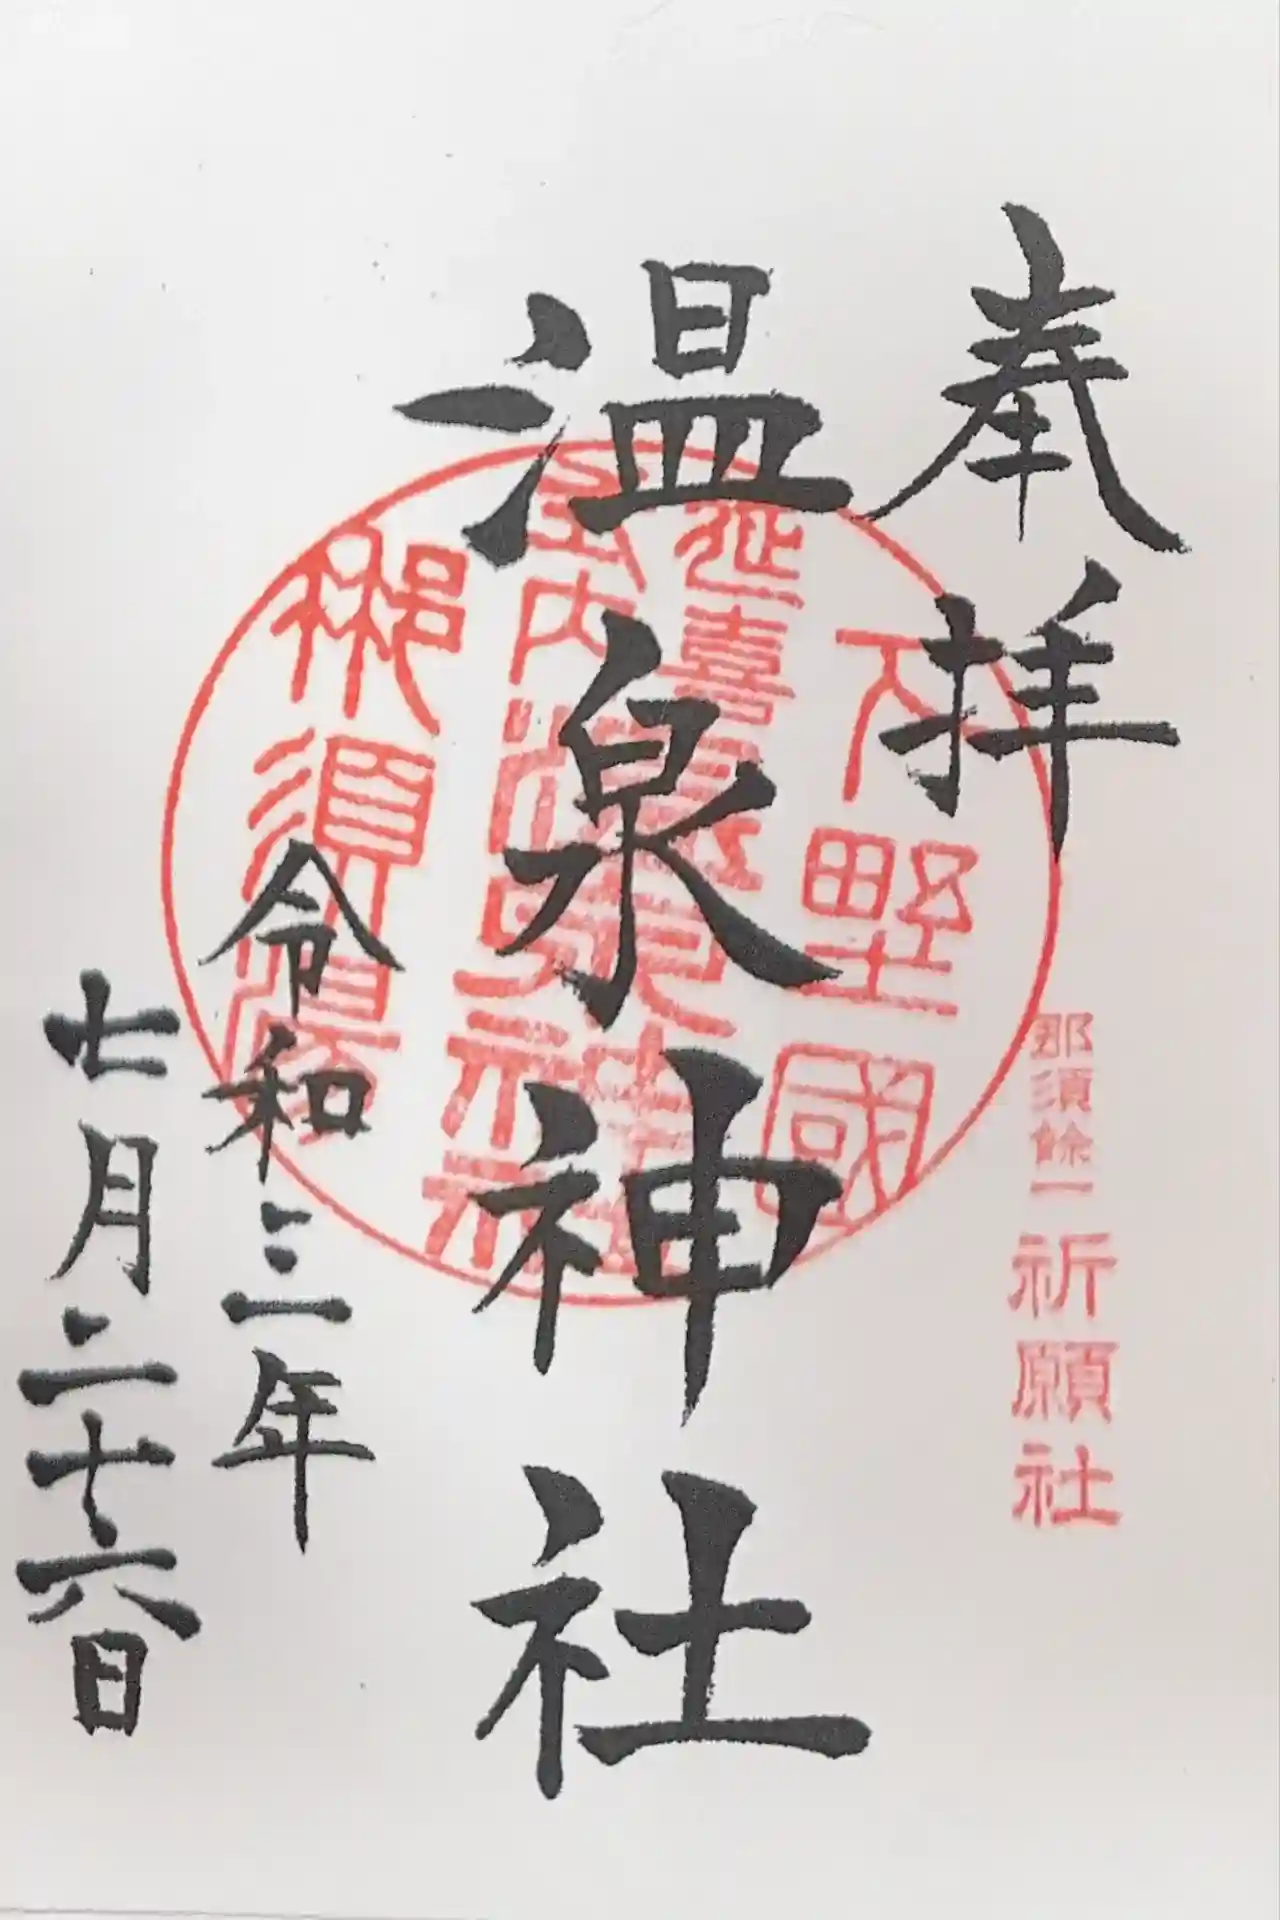 奉拝
那須餘一祈願社
温泉神社
下野國
延喜式内温泉神社
那須郷
令和三年
七月二十六日